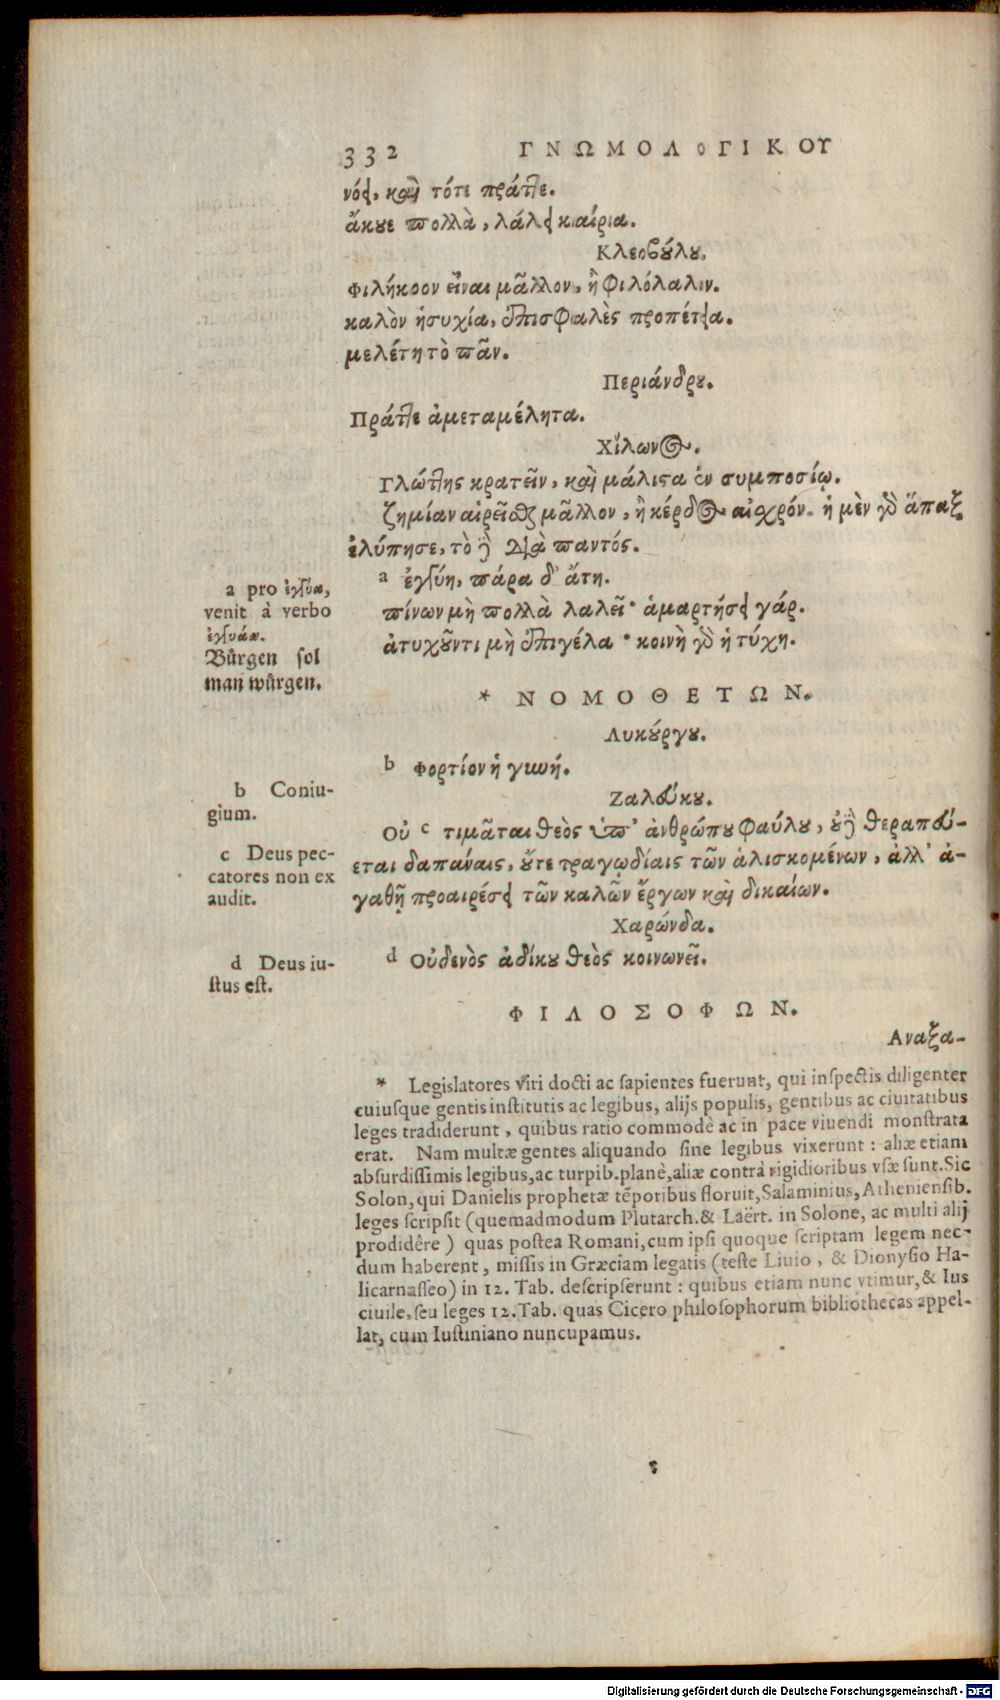 332 ΓΝΩΜΟΛΟΓΙΚΟΥ
νόει, καὶ τότε πράττε.
ἄκουε πολλὰ, λάλει καίρια.
Κλεοβούλου.
Φιλήκοον εἶναι μᾶλλον, ἢ φιλόλαλιν.
καλὸν ἡσυχία, ἐπισφαλὲς προπέτεια.
μελέτη τὸ πᾶν.
Περιάνδρου.
Πράττε ἀμεταμέλητα.
Χίλωνος.
Γλώττης κρατεῖν, καὶ μάλιστα ἐν συμποσίῳ.
ζημίαν αἱρεῖσθαι μᾶλλον, ἢ κέρδος αἰσχρόν. ἡ μὲν γὸ ἅπαξ
ἐλύπησε, τὸ δὲ διὰ παντός.
a ἐγγύη, πάρα δ' ἄτη.
πίνων μὴ πολλὰ λαλεῖ· ἁμαρτήσει γάρ.
ἀτυχοῦντι μὴ ἐπιγέλα· κοινὴ γὸ ἡ τύχη.
a pro ἐγγύα,
venit à verbo
ἐγγυάα.
Bürgen sol
man würgen.
* ΝΟΜΟΘΕΤΩΝ.
Λυκούργου.
b Φορτίον ἡ γυνή.
b Coniu-
gium.
Ζαλεύκου.
Οὐ c τιμᾶται θεὸς ὑπ' ἀνθρώπου φαύλου, οὐδὲ θεραπεύ-
εται δαπάναις, οὔτε τραγῳδίαις τῶν ἁλισκομένων, ἀλλ' ἀ-
γαθῇ προαιρέσει τῶν καλῶν ἔργων καὶ δικαίων.
c Deus pec-
catores non ex
audit.
Χαρώνδα.
d Οὐδενὸς ἀδίκου θεὸς κοινωνεῖ.
d Deus iu-
stus est.
ΦΙΛΟΣΟΦΩΝ.
Αναξα-
* Legislatores viri docti ac sapientes fuerunt, qui inspectis diligenter
cuiusque gentis institutis ac legibus, alijs populis, gentibus ac ciuitatibus
leges tradiderunt, quibus ratio commodè ac in pace viuendi monstrata
erat. Nam multæ gentes aliquando sine legibus vixerunt: aliæ etiam
absurdissimis legibus, ac turpib. planè, aliæ contrà rigidioribus vsæ sunt. Sic
Solon, qui Danielis prophetæ tẽporibus floruit, Salaminius, Atheniensib.
leges scripsit (quemadmodum Plutarch. & Laërt. in Solone, ac multi alij
prodidêre) quas postea Romani, cum ipsi quoque scriptam legem nec-
dum haberent, missis in Græciam legatis (teste Liuio, & Dionysio Ha-
licarnasseo) in 12. Tab. descripserunt: quibus etiam nunc vtimur, & Ius
ciuile, seu leges 12. Tab. quas Cicero philosophorum bibliothecas appel-
lat, cum Iustiniano nuncupamus.
Digitalisierung gefördert durch die Deutsche Forschungsgemeinschaft - DFG